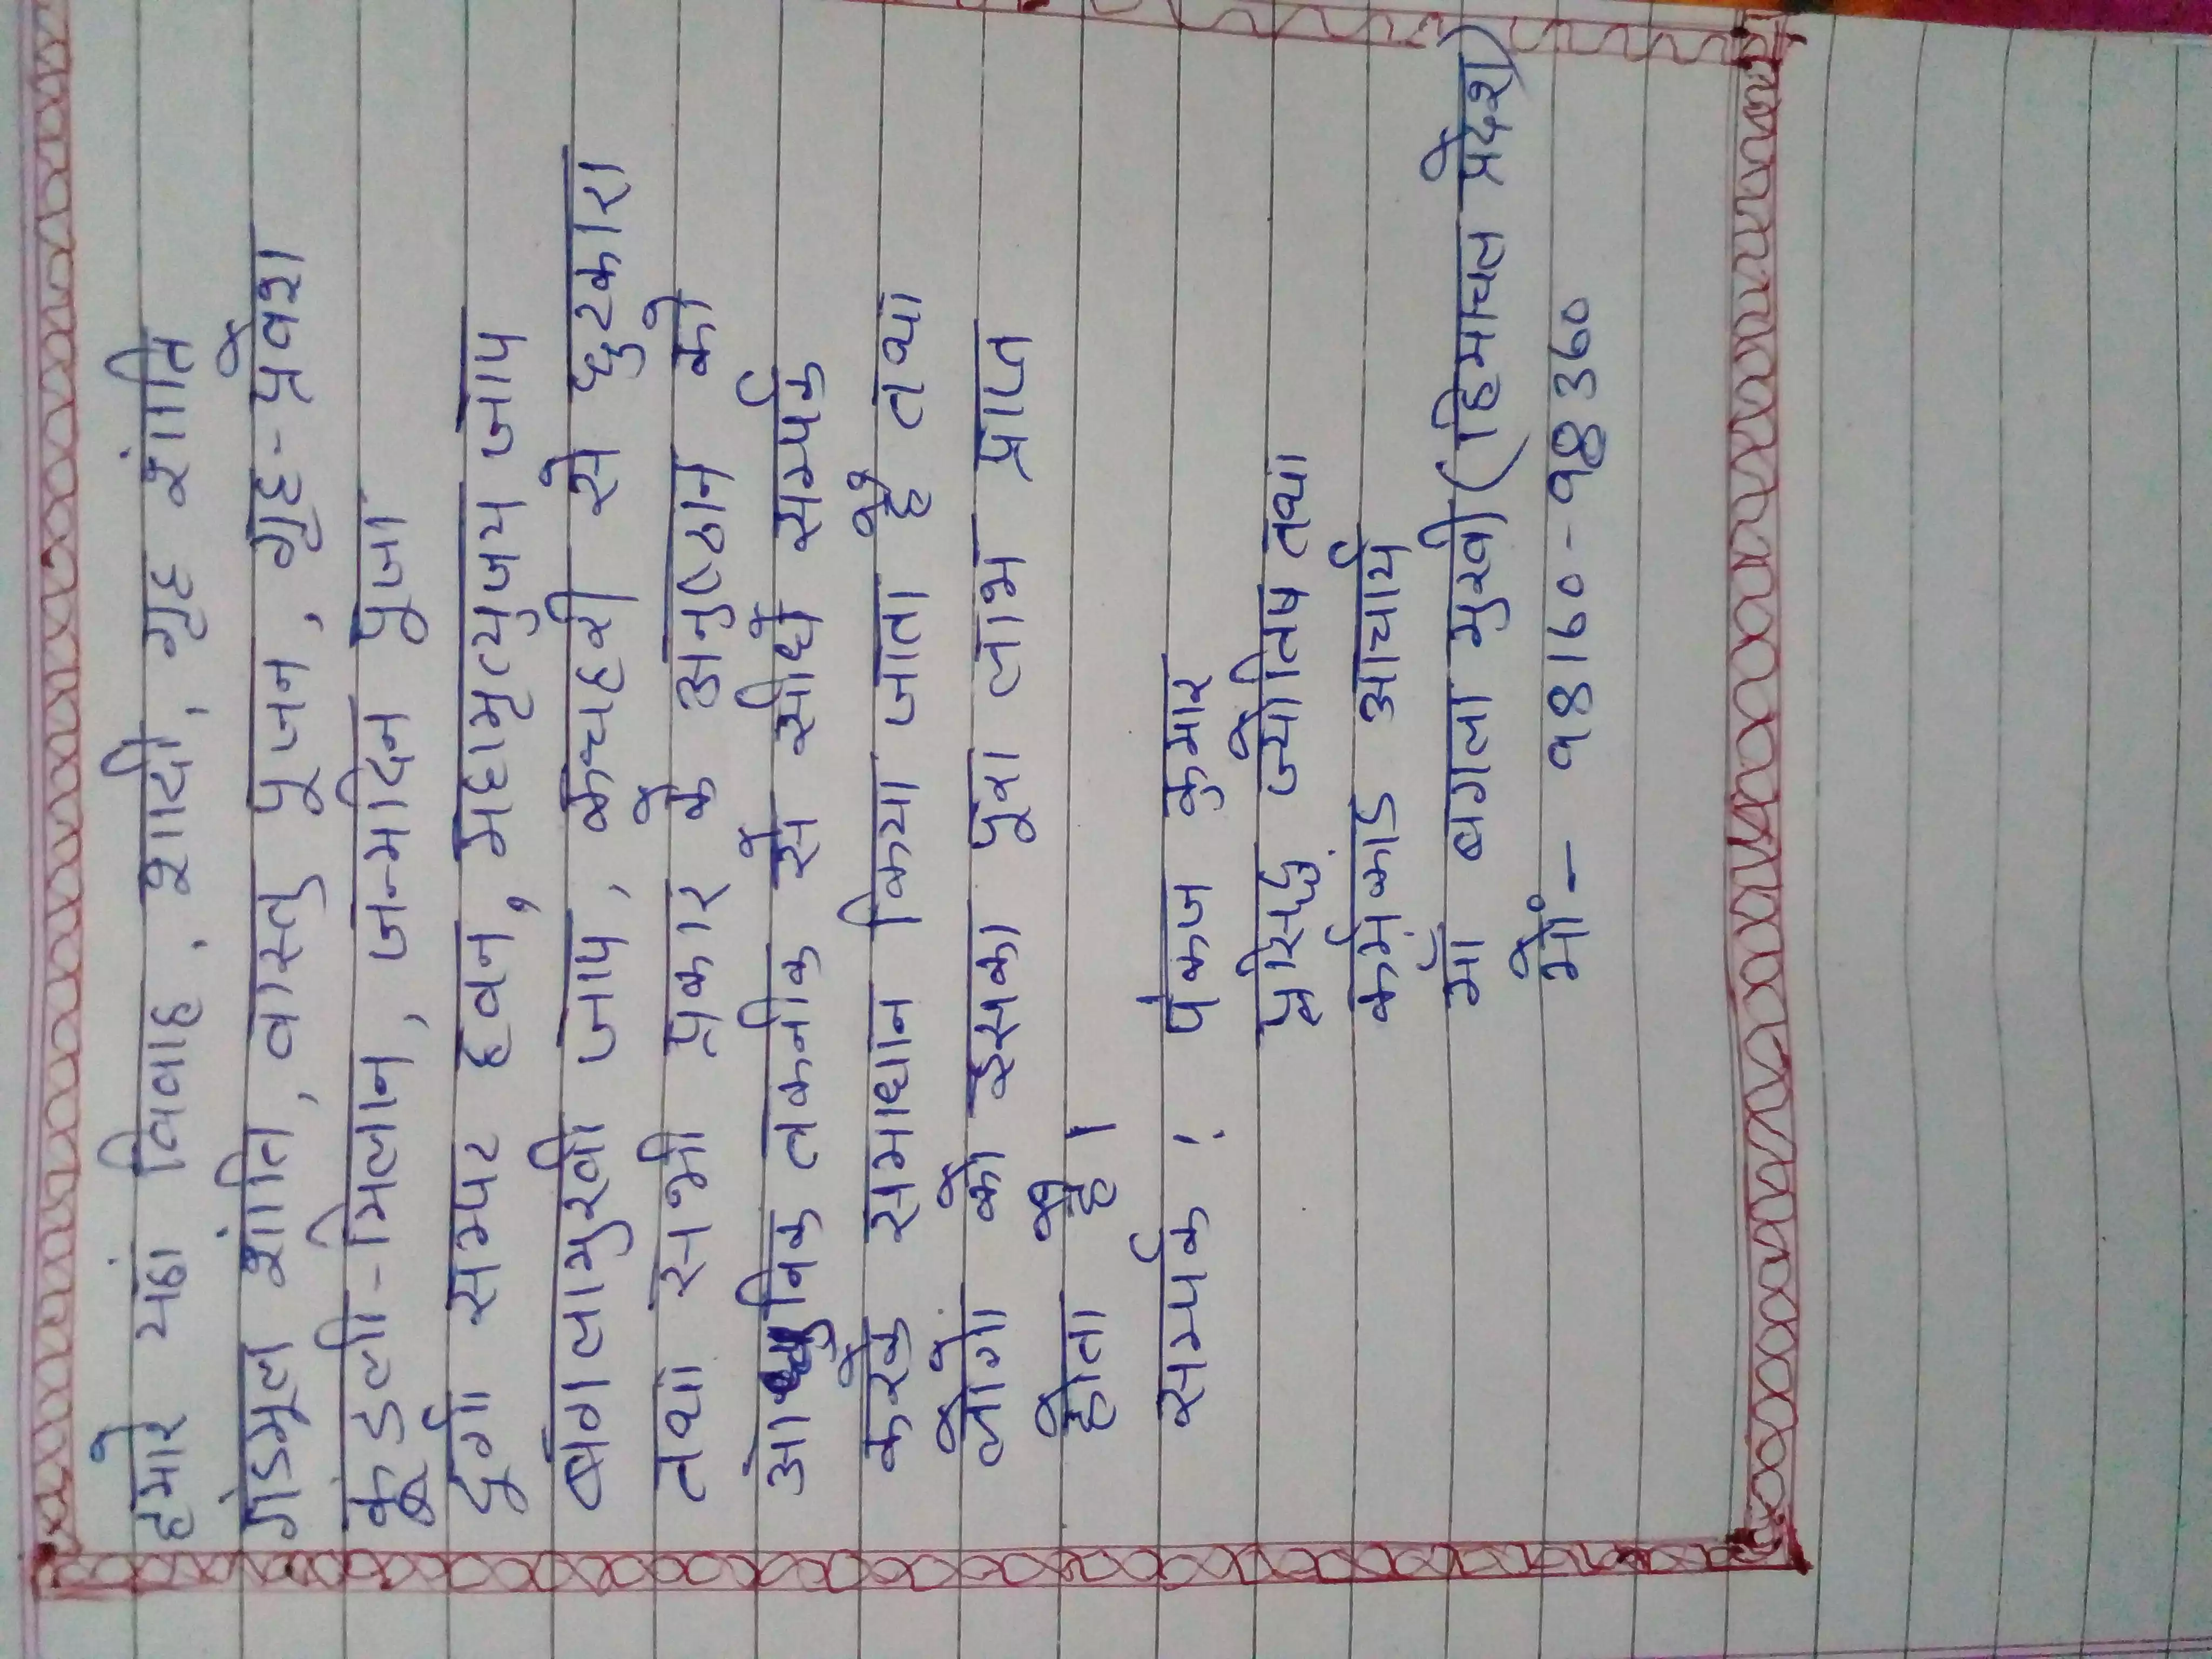 हमारे यहां विवाह, शादी, गृह शांति
गंडमूल शांति, वास्तु पूजन, गृह-प्रवेश
कूंडली-मिलान, जन्मदिन पूजा
दुर्गा सम्पट हवन, महामृत्युजय जाप
बगलामुखी जाप, कचहरी से छुटकारा
तथा सभी प्रकार के अनुष्ठान को
आधुनिक तकनीक से सीधे सम्पर्क
करके समाधान किया जाता है तथा
लोगो को इसका पूरा लाभ प्राप्त
होता है।
सम्पर्क : पंकज कुमार
प्रसिद्ध ज्योतिष तथा
कर्मकांड आचार्य
माँ बगला मुखी (हिमाचल प्रदेश)
मों॰- ९8160-९8360